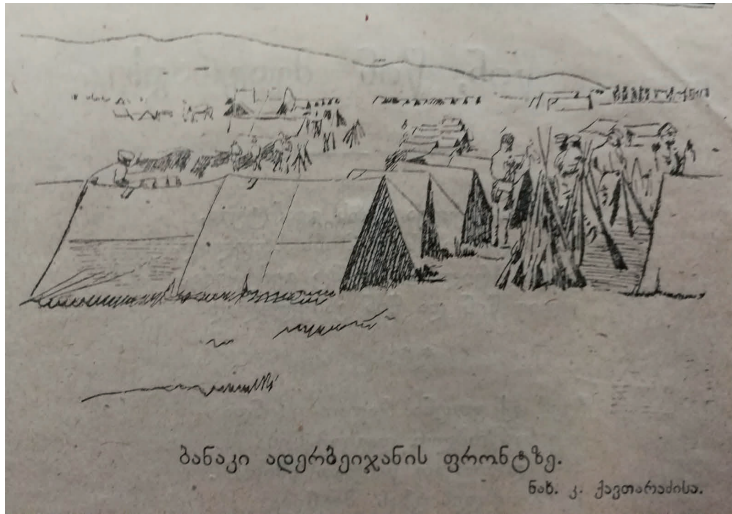 ბანაკი ადერბეიჯანის ფრონტზე.
ნახ. კ. ქავთარაძისა.